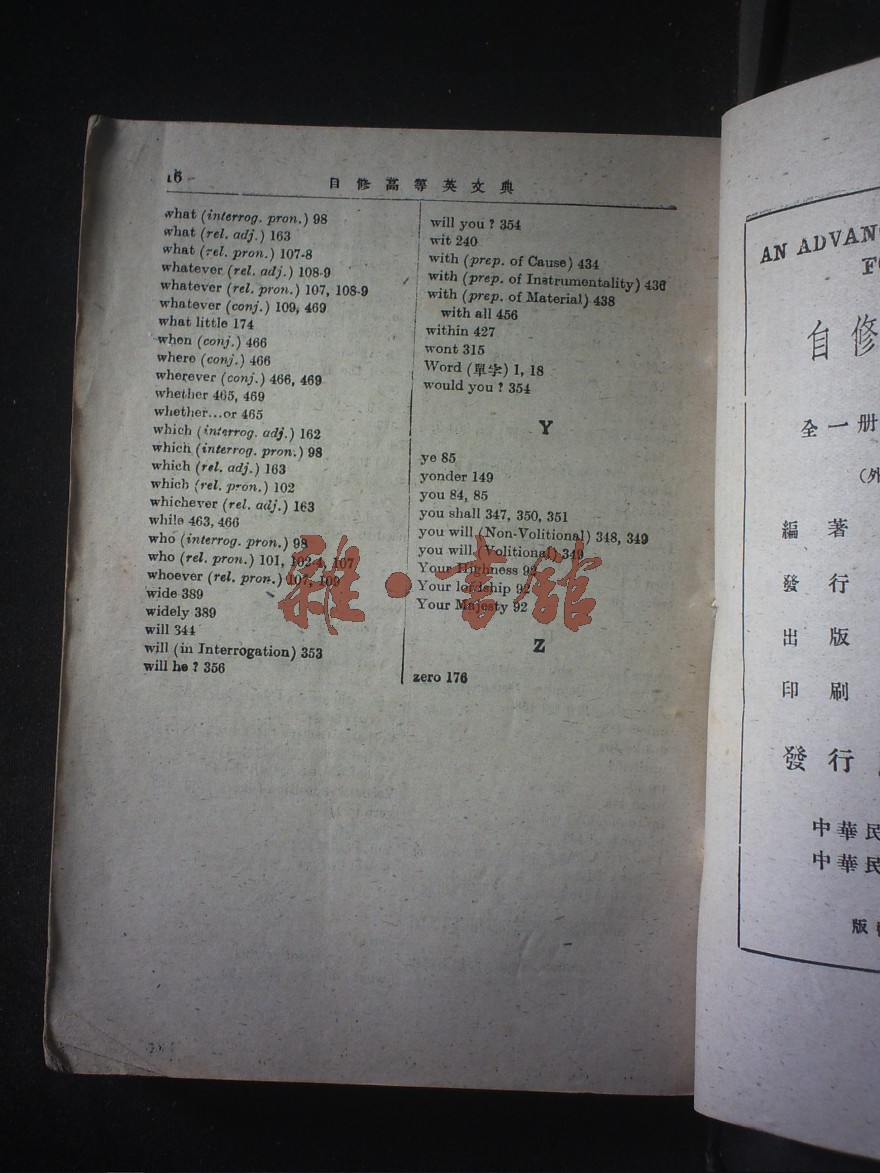 16
自修高等英文典
what (interrog. pron.) 98
what (rel. adj.) 163
what (rel. pron.) 107-8
whatever (rel. adj.) 108-9
whatever (rel. pron.) 107, 108-9
whatever (conj.) 109, 469
what little 174
when (conj.) 466
where (conj.) 466
wherever (conj.) 466, 469
whether 465, 469
whether...or 465
which (interrog. adj.) 162
which (interrog. pron.) 98
which (rel. adj.) 163
which (rel. pron.) 102
whichever (rel. adj.) 163
while 463, 466
who (interrog. pron.) 98
who (rel. pron.) 101, 102-4, 107
whoever (rel. pron.) 107, 109
wide 389
widely 389
will 344
will (in Interrogation) 353
will he ? 356
will you ? 354
wit 240
with (prep. of Cause) 434
with (prep. of Instrumentality) 436
with (prep. of Material) 438
with all 456
within 427
wont 315
Word (單字) 1, 18
would you ? 354
Y
ye 85
yonder 149
you 84, 85
you shall 347, 350, 351
you will (Non-Volitional) 348, 349
you will (Volitional) 349
Your Highness 92
Your lordship 92
Your Majesty 92
Z
zero 176
雜·書館
AN ADVANC
自修
全一册
(外
編著
發行
出版
印刷
發行
中華民
中華民
版